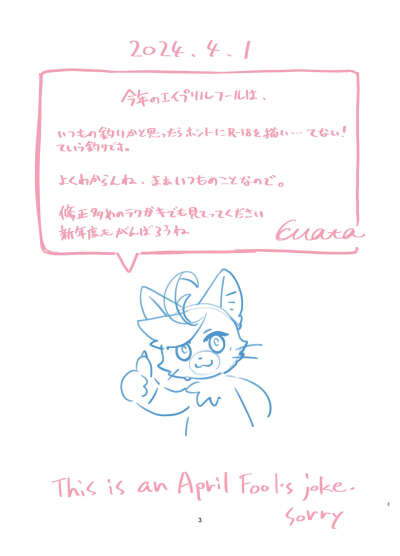 2024.4.1
今年のエイプリルフールは、
いつもの釣りかと思ったらホントにR-18を描い…てない!
ていう釣りです。
よくわからんね、まぁいつものことなので。
修正多めのラクガキでも見てってください
新年度もがんばろうね
Euata
This is an April Fool's joke.
sorry
3